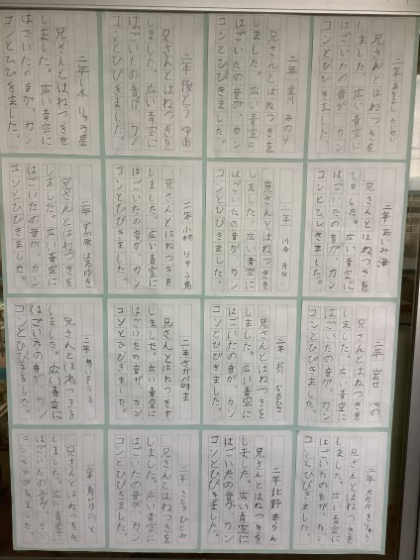 二年
兄さんとはねつきを
しました。広い青空に
はごいたの音が、カン
コンとひびきました。
二年 金川 みのり
兄さんとはねつきを
しました。広い青空に
はごいたの音が、カン
コンとひびきました。
二年 ゆあ
兄さんとはねつきを
しました。広い青空に
はごいたの音が、カン
コンとひびきました。
二年 りゅう星
兄さんとはねつきを
しました。広い青空に
はごいたの音が、カン
コンとひびきました。
二年
兄さんとはねつきを
しました。広い青空に
はごいたの音が、カン
コンとひびきました。
二年
兄さんとはねつきを
しました。広い青空に
はごいたの音が、カン
コンとひびきました。
二年 小村
兄さんとはねつきを
しました。広い青空に
はごいたの音が、カン
コンとひびきました。
二年 はるゆき
兄さんとはねつきを
しました。広い青空に
はごいたの音が、カン
コンとひびきました。
二年 岩せ
兄さんとはねつきを
しました。広い青空に
はごいたの音が、カン
コンとひびきました。
二年
兄さんとはねつきを
しました。広い青空に
はごいたの音が、カン
コンとひびきました。
二年
兄さんとはねつきを
しました。広い青空に
はごいたの音が、カン
コンとひびきました。
二年
兄さんとはねつきを
しました。広い青空に
はごいたの音が、カン
コンとひびきました。
二年
兄さんとはねつきを
しました。広い青空に
はごいたの音が、カン
コンとひびきました。
二年 北野
兄さんとはねつきを
しました。広い青空に
はごいたの音が、カン
コンとひびきました。
二年
兄さんとはねつきを
しました。広い青空に
はごいたの音が、カン
コンとひびきました。
二年
兄さんとはねつきを
しました。広い青空に
はごいたの音が、カン
コンとひびきました。